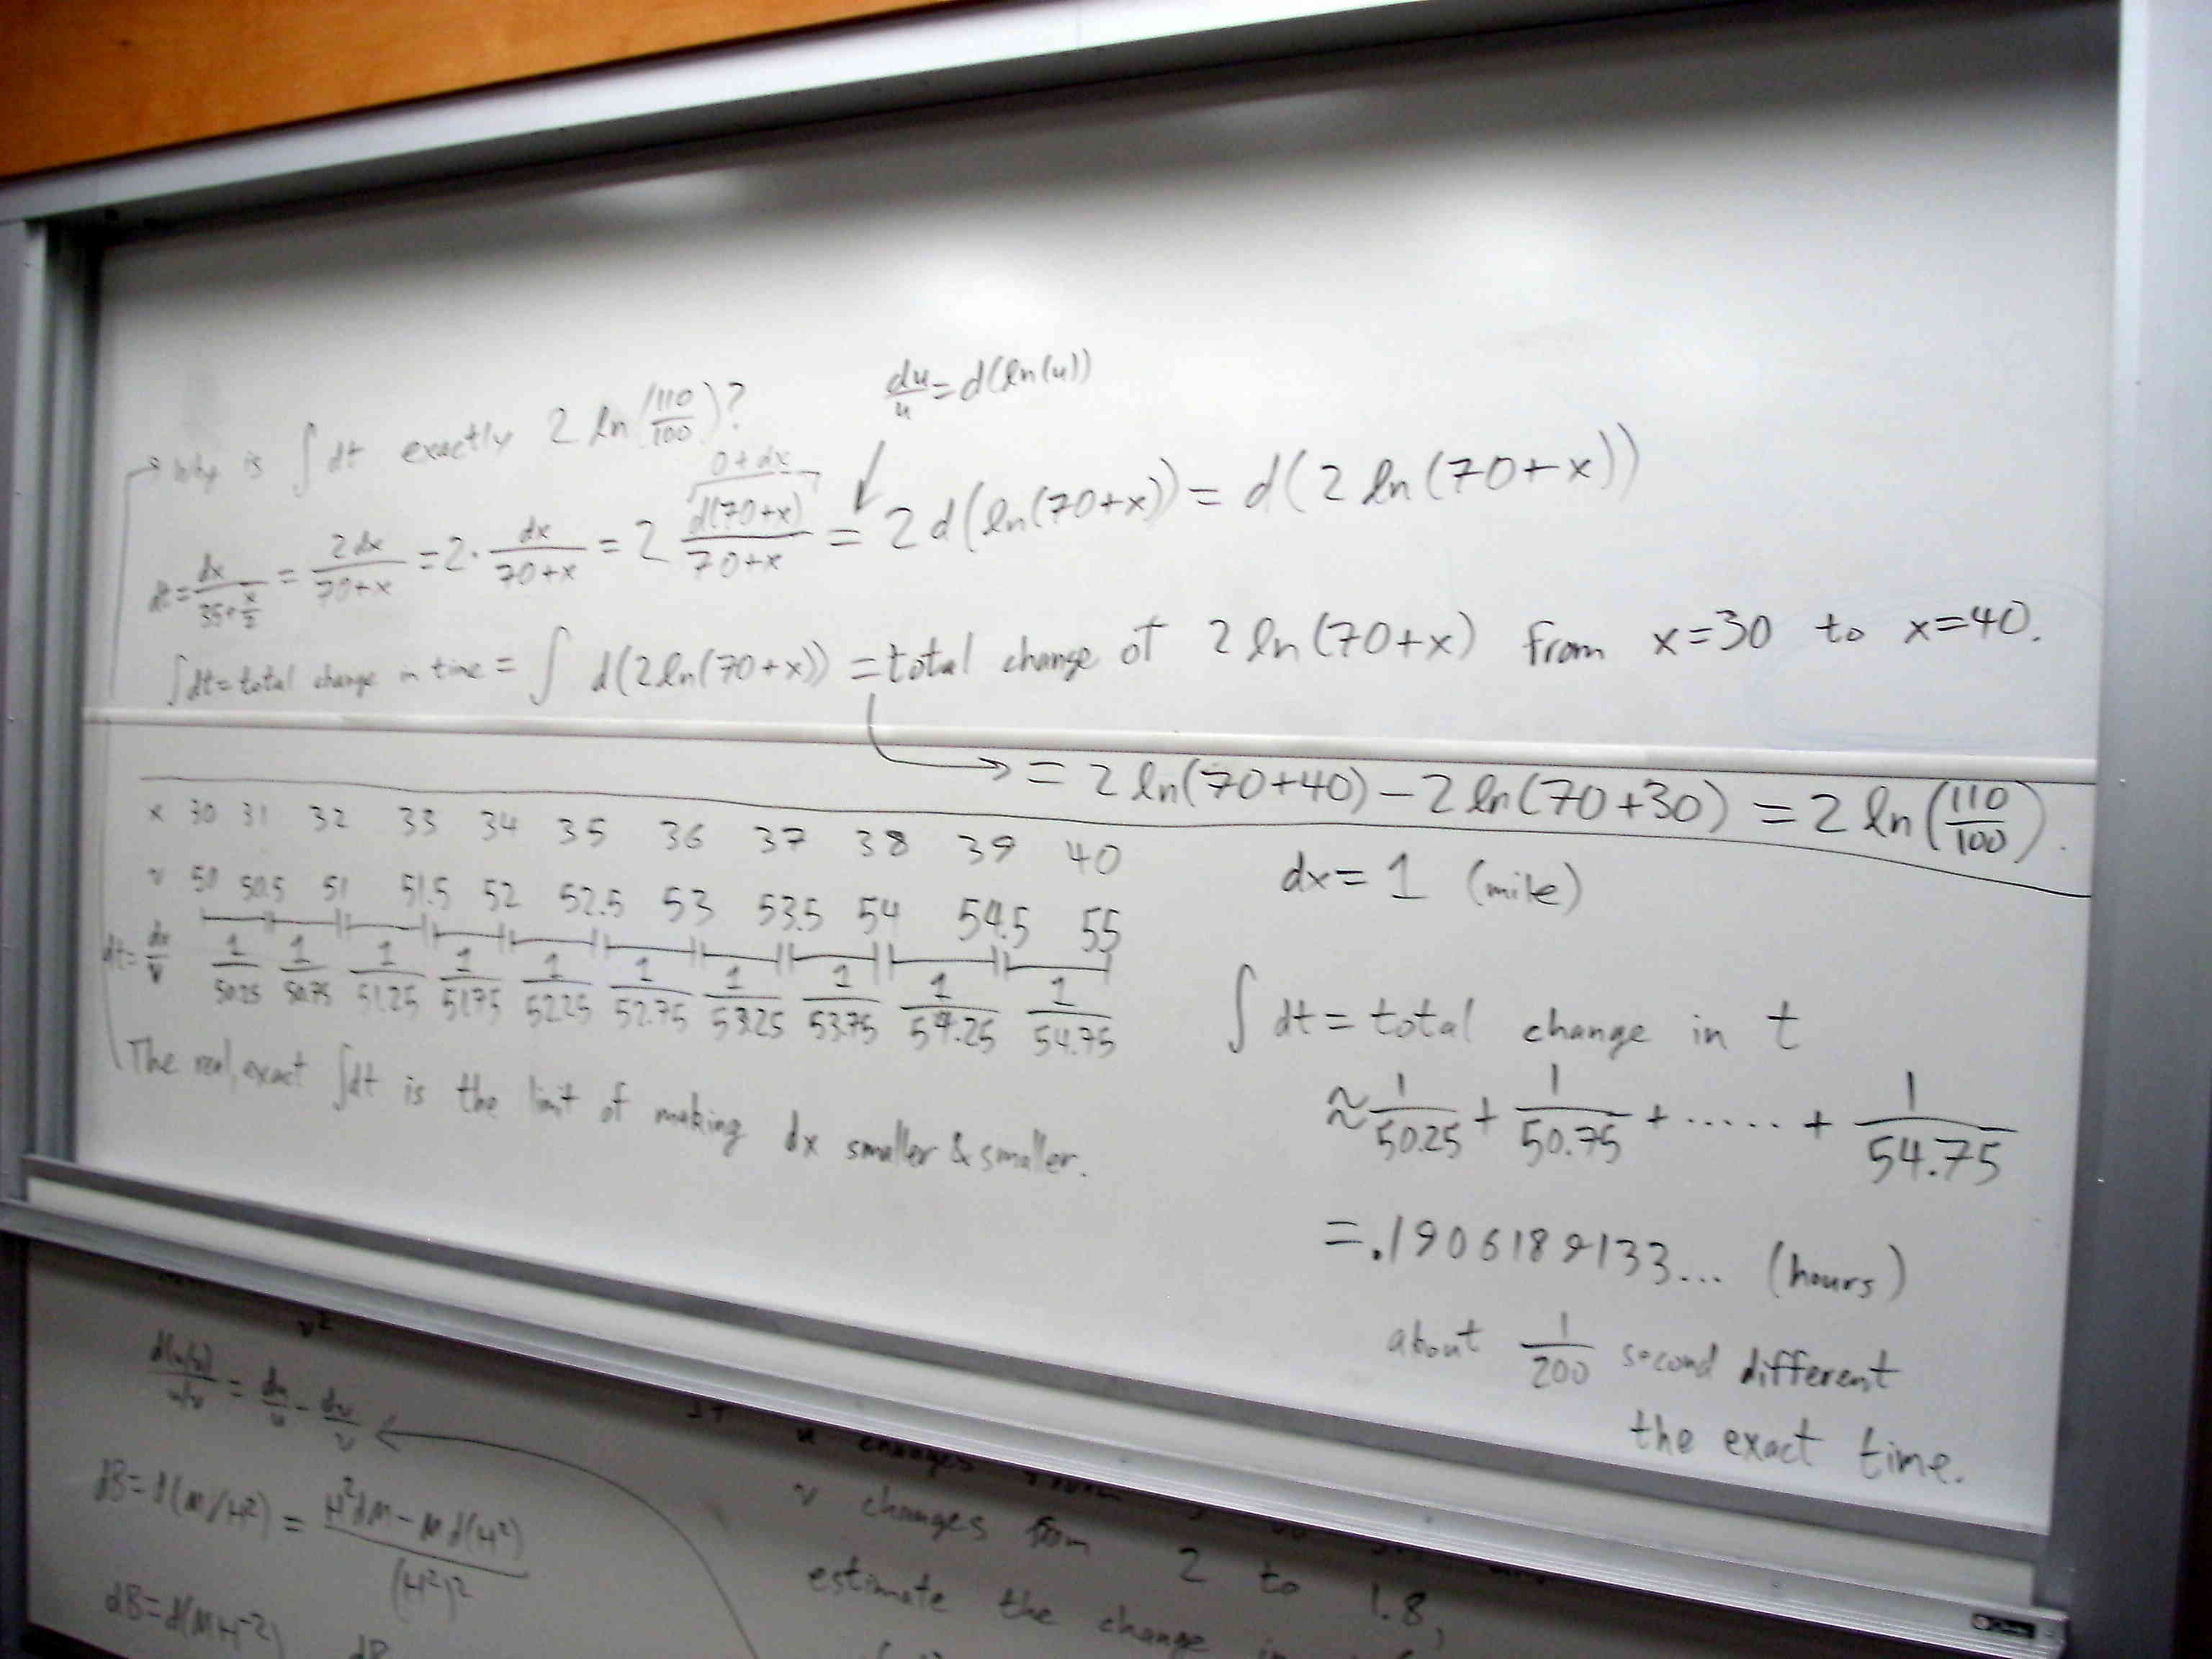 du/u = d(ln(u))
Why is ∫ dt exactly 2 ln(110/100)?
0+dx
dt = dx/(35+x/2) = 2dx/(70+x) = 2· dx/(70+x) = 2 d(70+x)/(70+x) = 2 d(ln(70+x)) = d(2 ln(70+x))
∫dt = total change in time = ∫ d(2ln(70+x)) = total change of 2 ln(70+x) from x=30 to x=40.
→ = 2 ln(70+40) − 2 ln(70+30) = 2 ln(110/100).
x 30 31 32 33 34 35 36 37 38 39 40
v 50 50.5 51 51.5 52 52.5 53 53.5 54 54.5 55
dt = dx/v 1/50.25 1/50.75 1/51.25 1/51.75 1/52.25 1/52.75 1/53.25 1/53.75 1/54.25 1/54.75
The real, exact ∫dt is the limit of making dx smaller & smaller.
dx = 1 (mile)
∫ dt = total change in t
≈ 1/50.25 + 1/50.75 + ...... + 1/54.75
= .1906189133... (hours)
about 1/200 second different
the exact time.
v²
d(u/v)/(u/v) = du/u − dv/v
dB = d(M/H²) = (H²dM − M d(H²))/(H²)²
dB = d(MH⁻²) dB
u changes from
v changes from 2 to 1.8,
estimate the change in